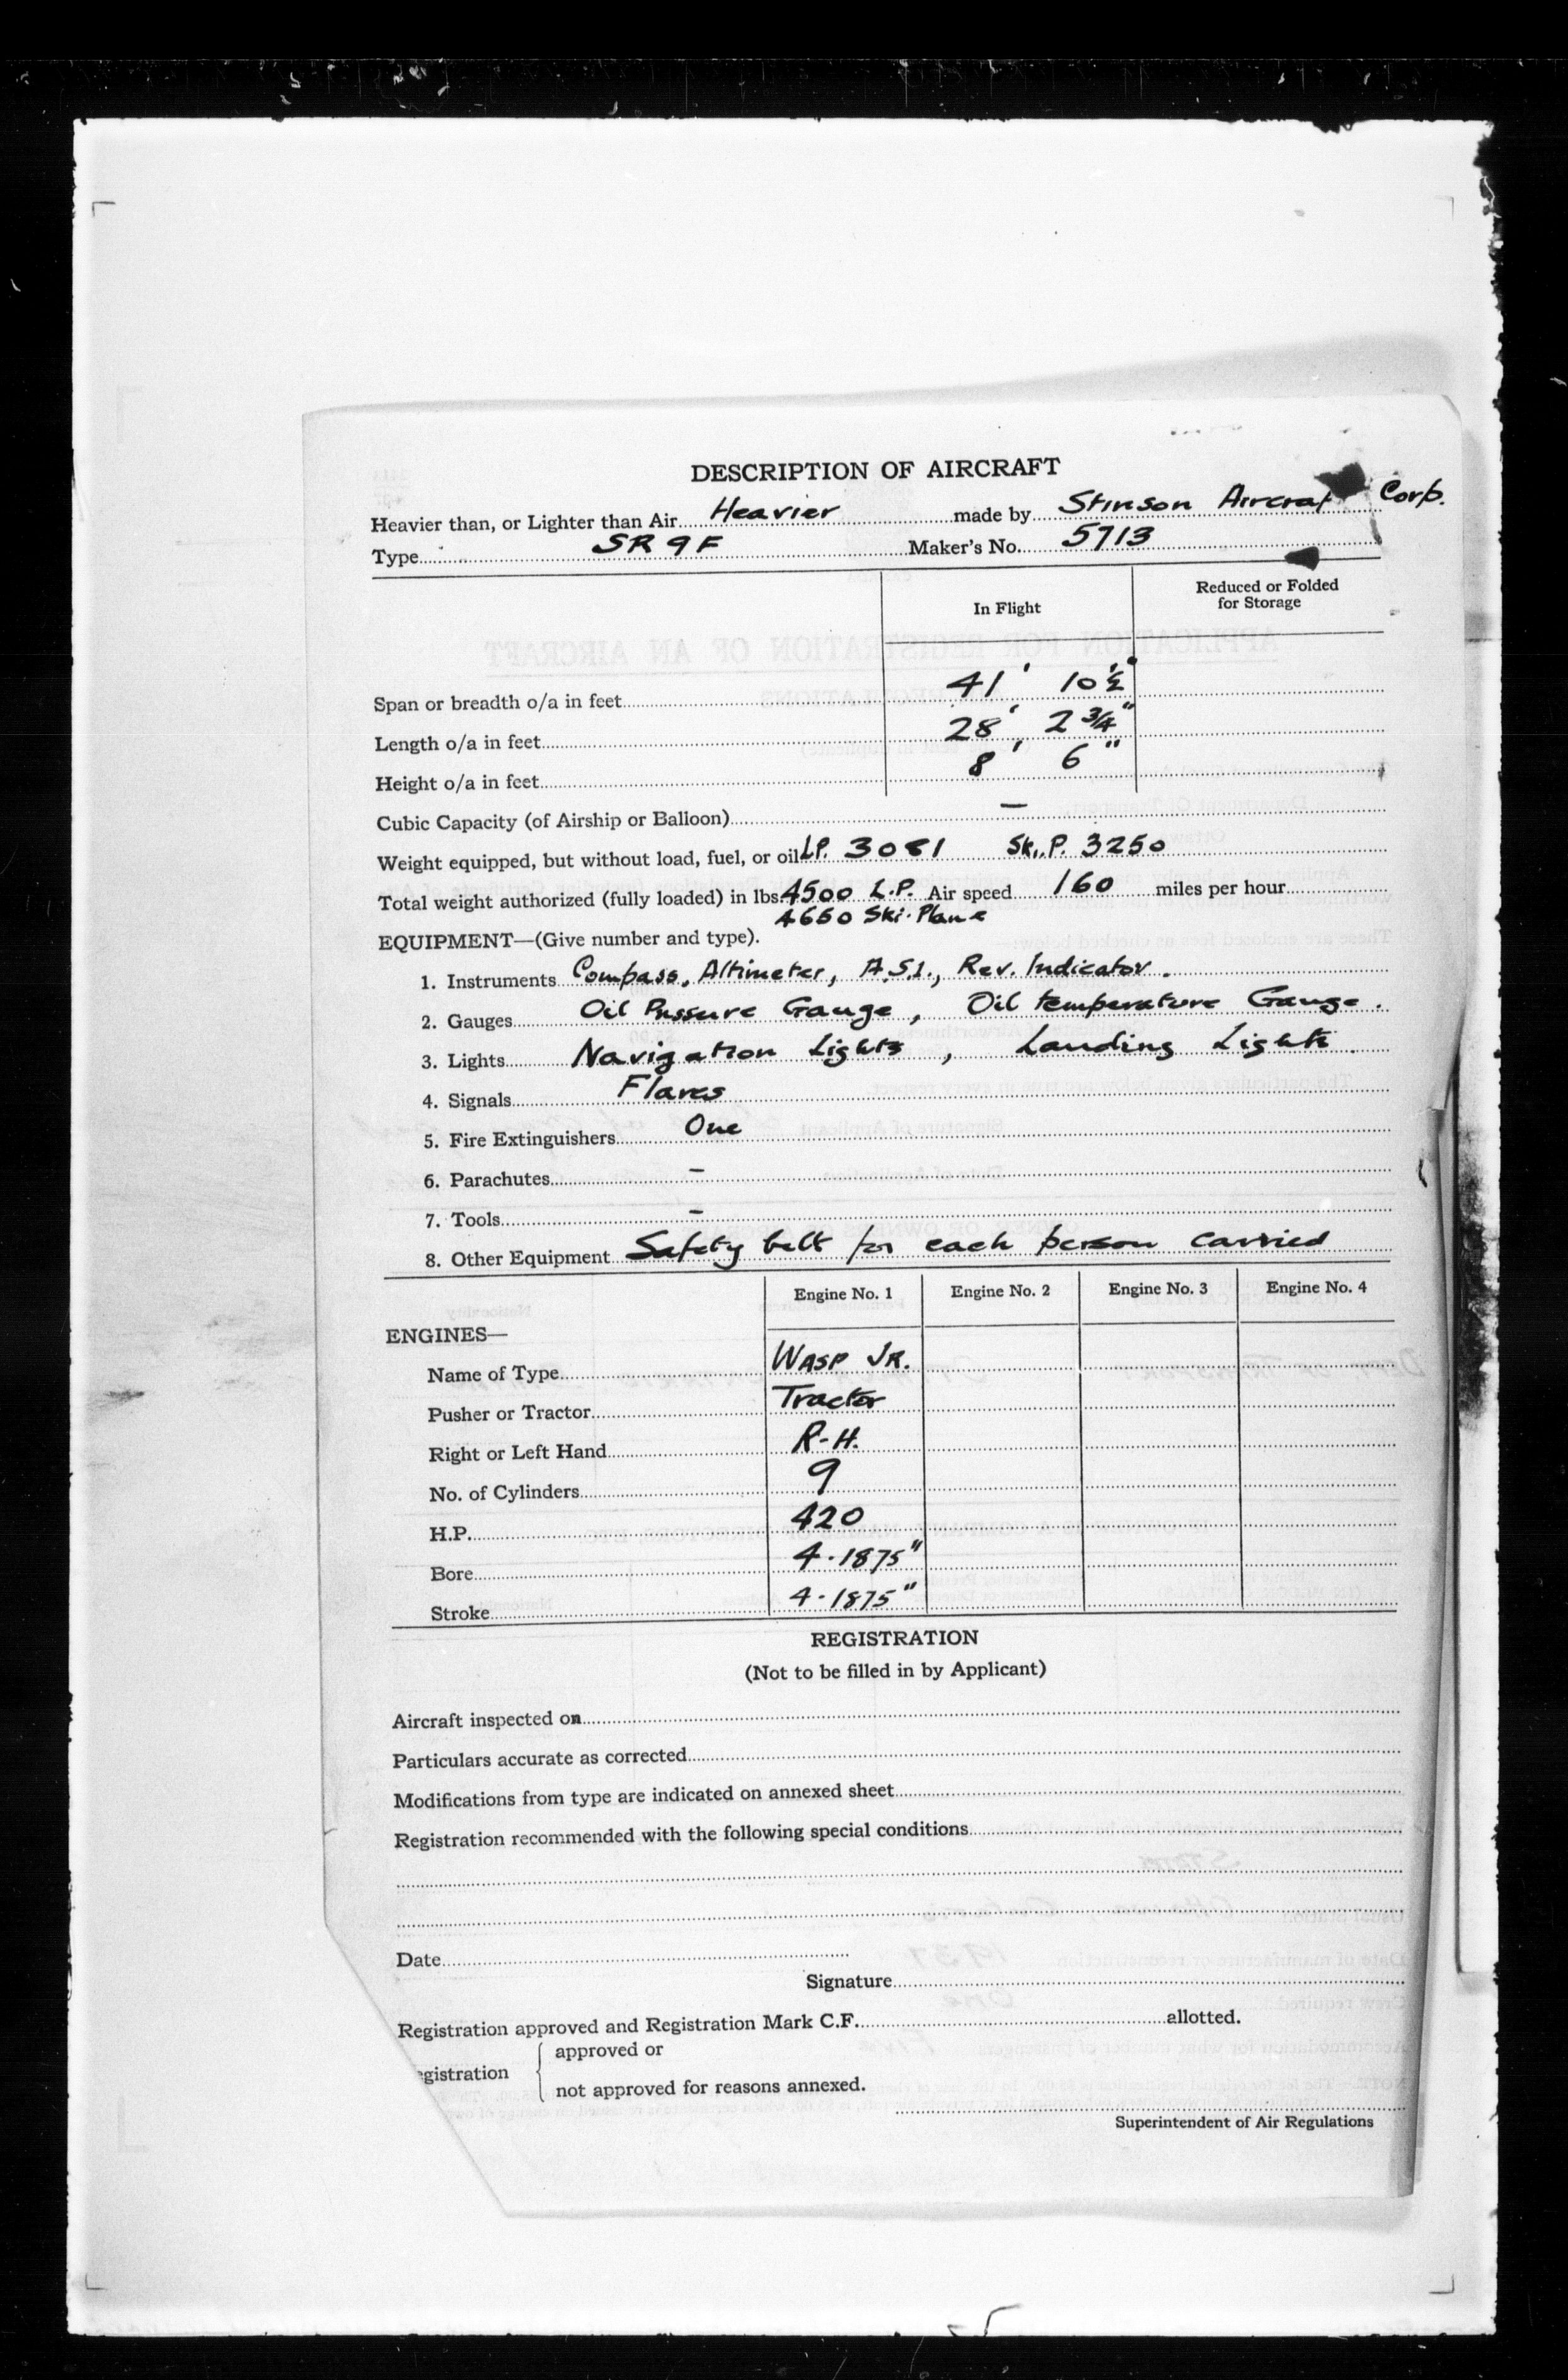 DESCRIPTION OF AIRCRAFT
Heavier than, or Lighter than Air Heavier made by Stinson Aircraft Corp.
Type SR 9 F Maker's No. 5713
In Flight Reduced or Folded for Storage
Span or breadth o/a in feet 41' 10 ½"
Length o/a in feet 28' 2 ¾"
Height o/a in feet 8' 6"
Cubic Capacity (of Airship or Balloon) —
Weight equipped, but without load, fuel, or oil LP. 3081 Ski.P. 3250
Total weight authorized (fully loaded) in lbs. 4500 L.P. Air speed 160 miles per hour
4650 Ski-Plane
EQUIPMENT—(Give number and type).
1. Instruments Compass, Altimeter, A.S.I., Rev. Indicator.
2. Gauges Oil Pressure Gauge, Oil temperature Gauge.
3. Lights Navigation Lights, Landing Lights.
4. Signals Flares
5. Fire Extinguishers One
6. Parachutes –
7. Tools –
8. Other Equipment Safety belt for each person carried
Engine No. 1 Engine No. 2 Engine No. 3 Engine No. 4
ENGINES—
Name of Type WASP JR.
Pusher or Tractor Tractor
Right or Left Hand R-H.
No. of Cylinders 9
H.P. 420
Bore 4.1875"
Stroke 4.1875"
REGISTRATION
(Not to be filled in by Applicant)
Aircraft inspected on
Particulars accurate as corrected
Modifications from type are indicated on annexed sheet
Registration recommended with the following special conditions
Date
Signature
Registration approved and Registration Mark C.F. allotted.
approved or
egistration
not approved for reasons annexed.
Superintendent of Air Regulations